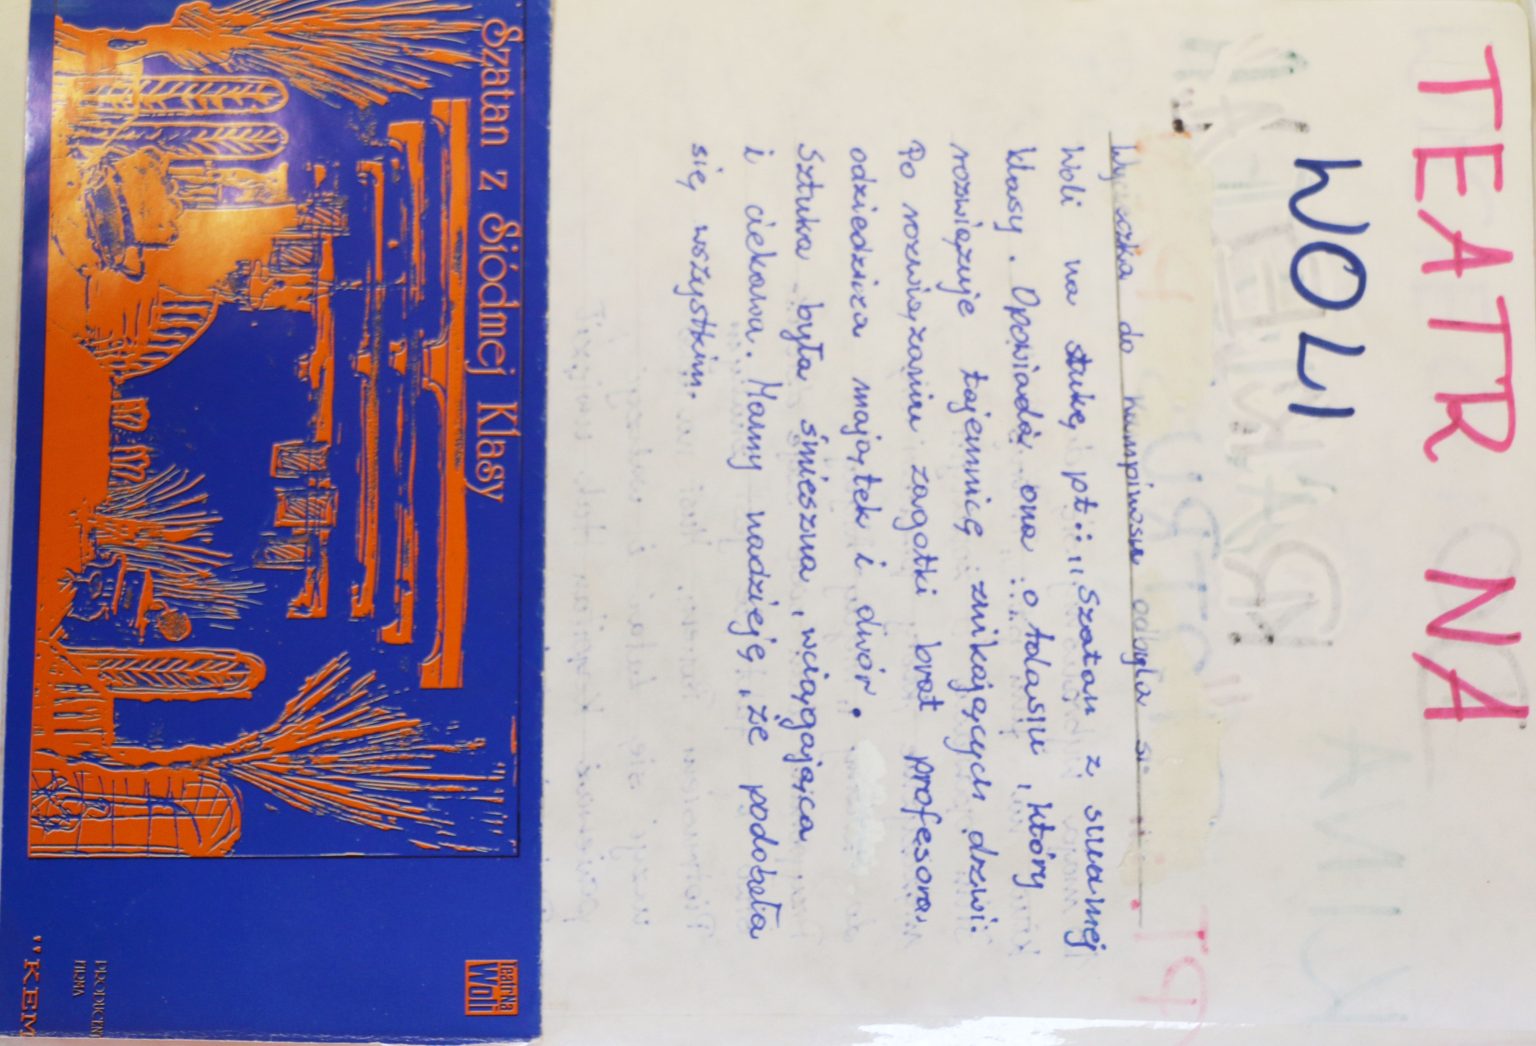 TEATR NA
WOLI
Wycieczka do Kampinosu odbyła się
Woli na stukę pt.: "Szatan z suamej
klasy. Opowiada ona o Adasiu, który
rozwiązuje tajemnicę znikających drzwi.
Po rozwiązaniu zagatki brat profesora
odziedzicza majątek i dwór.
Sztuka była śmieszna, wciągająca
i ciekawa. Mamy nadzieję, że podobała
się wszystkim.
Szatan z Siódmej Klasy
teatr Na
Woli
PRODUCENT
FIRMA
"KEM